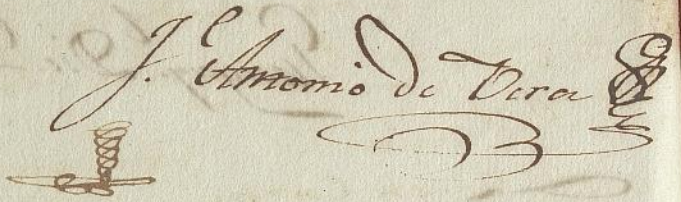 J. Antonio de Vera